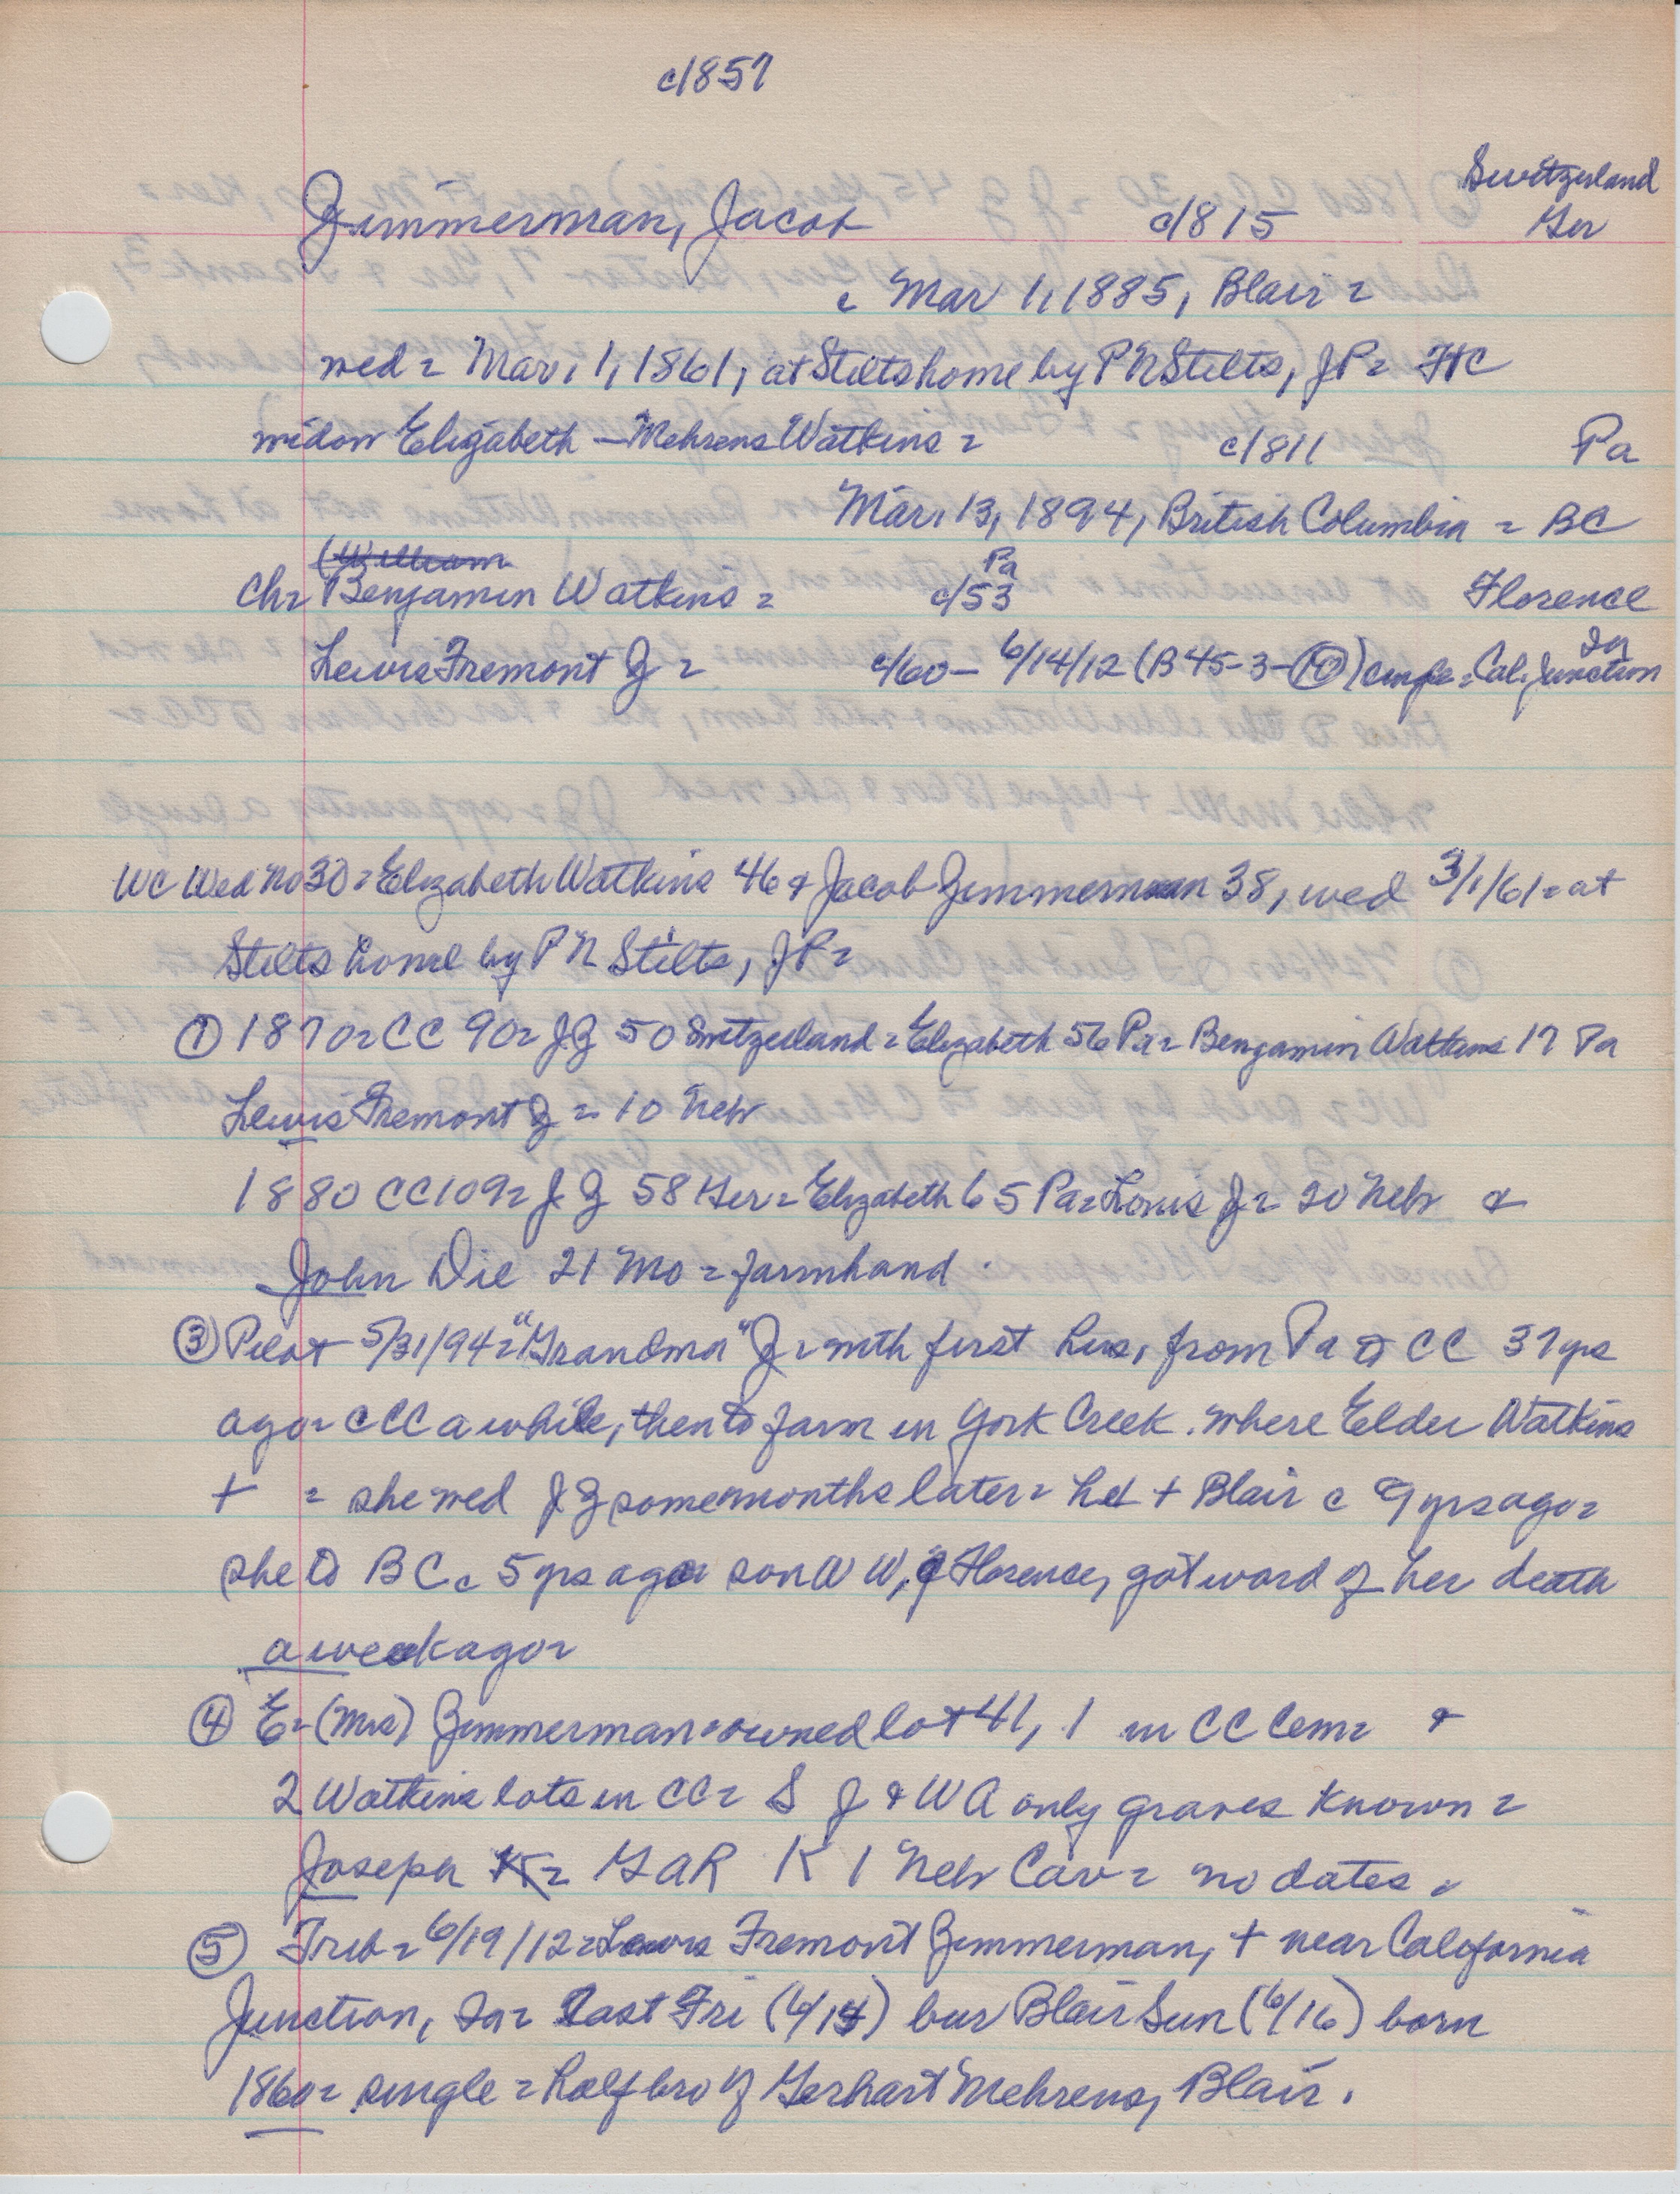 c1857
Switzerland
Zimmerman, Jacob c1815 Ger
c Mar 1, 1885, Blair =
wed = Mar. 1, 1861, at Stilts home by P N Stilts, JP = FtC
widow Elizabeth — Mehrens Watkins = c1811 Pa
Mar. 13, 1894, British Columbia = BC
(William Pa
Ch = Benjamin Watkins = c/53 Florence
Lewis Fremont Z = c/60 - 6/14/12 (B 45-3-10) = Cal. Junction Ia
WC Wed No 30 = Elizabeth Watkins 46 & Jacob Zimmerman 38, wed 3/1/61 = at
Stilts home by P N Stilts, JP =
① 1870 = CC 90 = J Z 50 Switzerland = Elizabeth 56 Pa = Benjamin Watkins 17 Pa
Lewis Fremont Z = 10 Neb
1880 CC 109 = J Z 58 Ger = Elizabeth 65 Pa = Louis Z = 20 Neb &
John Die 21 Mo = farmhand.
③ Pilot 5/31/94 = "Grandma" Z = with first hus, from Pa to CC 37 yrs
ago = CC awhile, then to farm in York Creek. where Elder Watkins
+ = she wed J Z some months later = he + Blair c 9 yrs ago =
she to BC c 5 yrs ago = son W W, of Florence, got word of her death
a week ago =
④ E = (Mrs) Zimmerman = owned lot 41, 1 in CC Cem = &
2 Watkins lots in CC = S J & W A only graves known =
Joseph = GAR K 1 Neb Cav = no dates.
⑤ Trib = 6/19/12 = Lewis Fremont Zimmerman, + near California
Junction, Ia = last Fri (6/14) bur Blair Sun (6/16) born
1860 = single = half bro of Gerhart Mehrens, Blair.